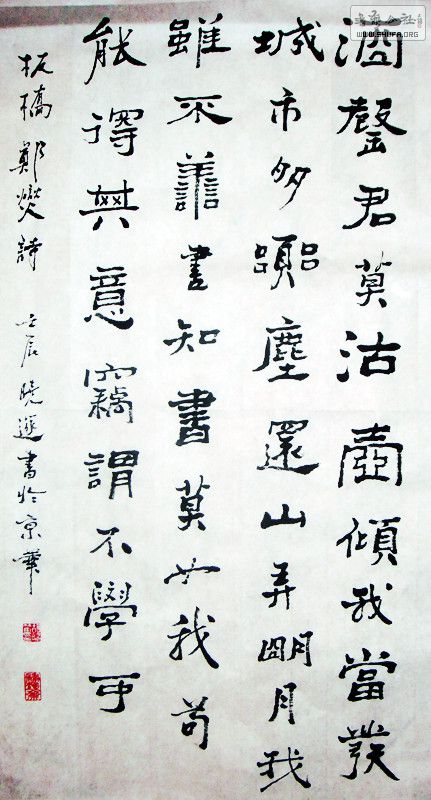 书艺公社
WWW.SHUFA.ORG
酒罄君莫沽壺傾我當發
城市多囂塵還山弄朙月我
雖不譱書知書莫如我苟
能得其意竊謂不學可
板橋鄭燮詩 壬辰曉進書於京華